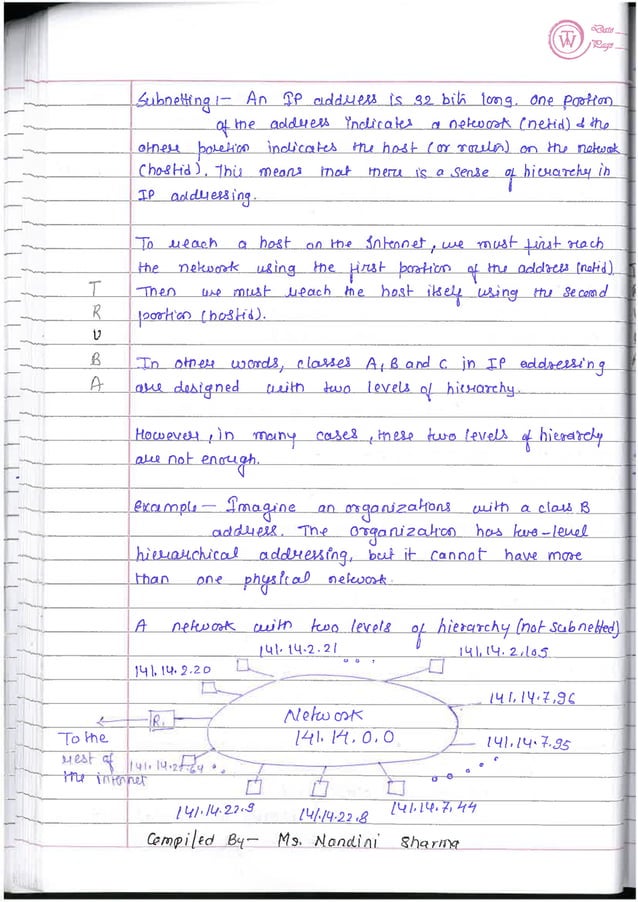 Date
Page
Subnetting:- An IP address is 32 bits long. One portion
of the address indicates a network (netid) & the
other portion indicates the host (or router) on the network
(hostid). This means that there is a sense of hierarchy in
IP addressing.
To reach a host on the Internet, we must first reach
the network using the first portion of the address (netid)
Then we must reach the host itself using the second
portion (hostid).
T
R
U
B
A
In other words, classes A, B and C in IP addressing
are designed with two levels of hierarchy.
However, in many cases, these two levels of hierarchy
are not enough.
Example- Imagine an organizations with a class B
address. The organization has two-level
hierarchical addressing, but it cannot have more
than one physical network.
A network with two levels of hierarchy (not subnetted)
141.14.2.21
141.14.2.105
141.14.2.20
141.14.7.96
R.
Network
141.14.0.0
To the
rest of
the internet
141.14.7.95
141.14.22.9
141.14.22.8
141.14.7.44
Compiled By- Ms. Nandini Sharma